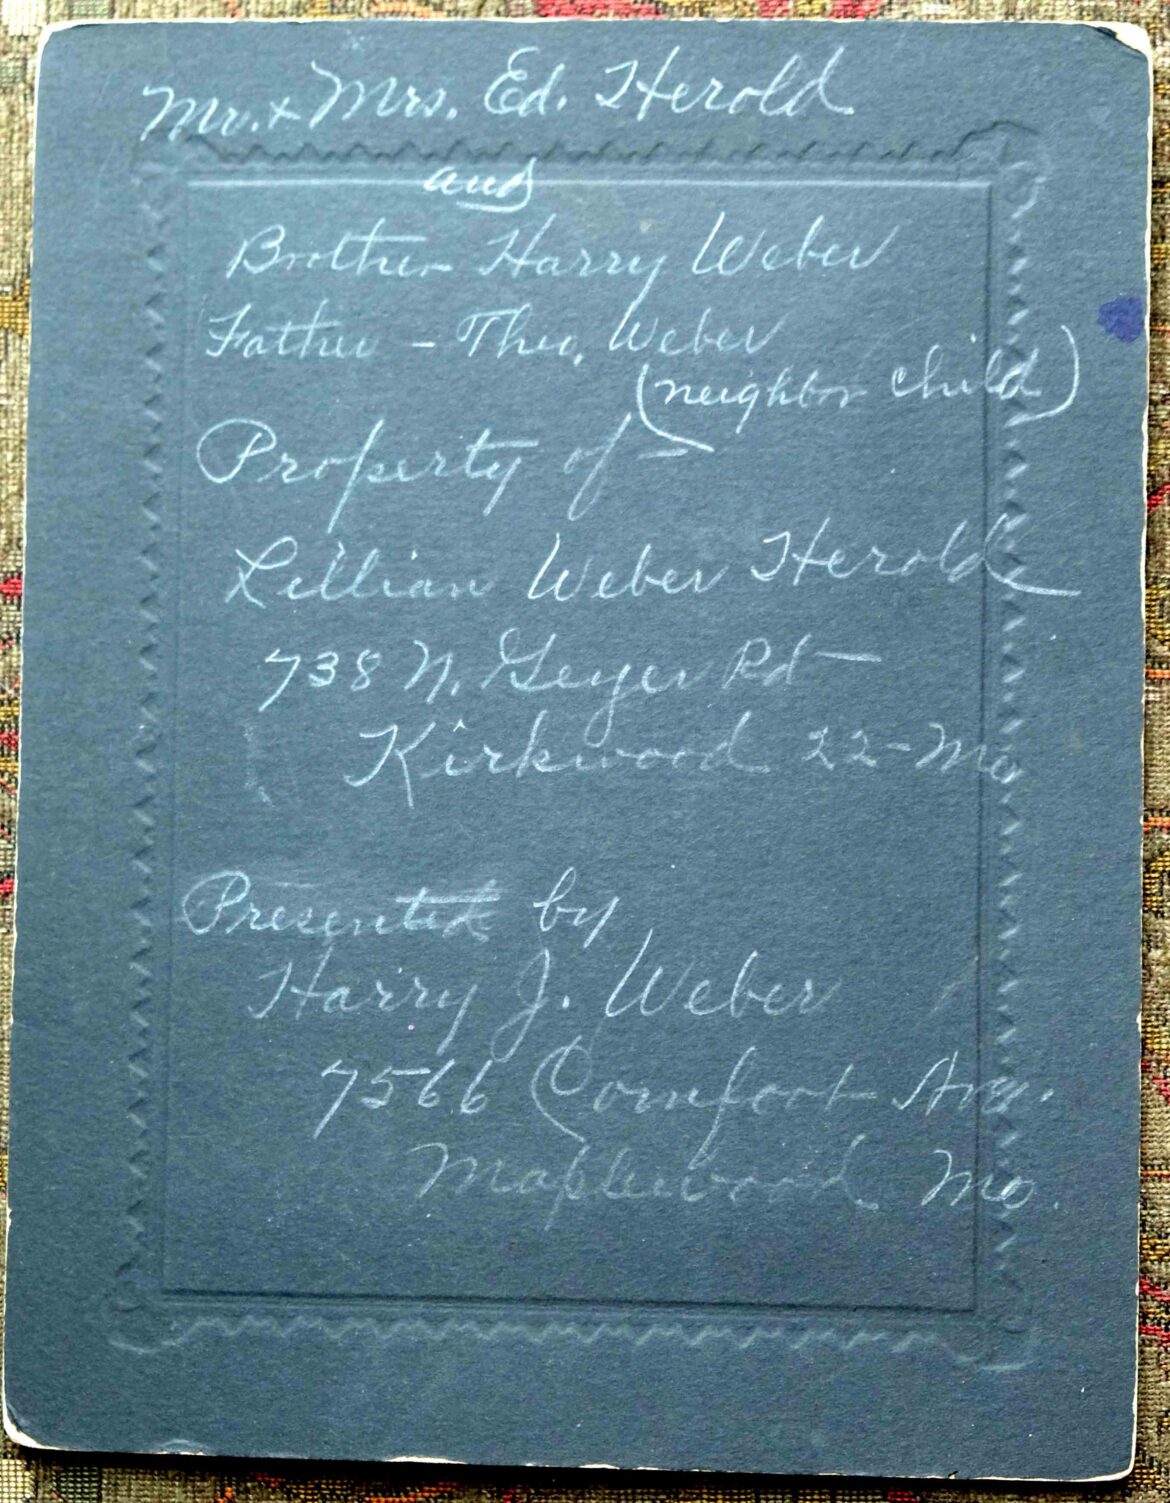 Mr. & Mrs. Ed. Herold
and
Brother Harry Weber
Father - Theo. Weber
(neighbor child)
Property of -
Lillian Weber Herold
738 N. Geyer Rd -
Kirkwood 22 - Mo
Presented by
Harry J. Weber
7566 Comfort Ave.
Maplewood Mo.